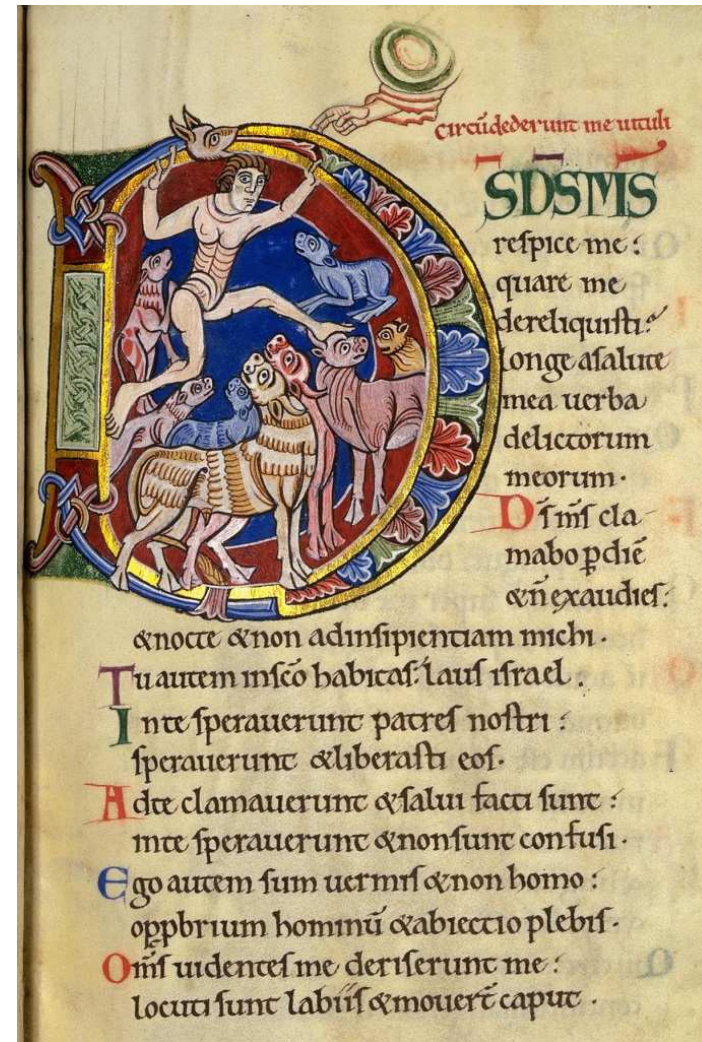 Circūdederunt me uituli
SDSMS
respice me:
quare me
dereliquisti?
longe asalute
mea uerba
delictorum
meorum.
Ds ms cla
mabo p̱ diē
& n̄ exaudies:
& nocte & non ad insipientiam michi.
Tu autem in sc̄o habitas: laus israel.
In te sperauerunt patres nostri:
sperauerunt & liberasti eos.
Ad te clamauerunt & salui facti sunt:
in te sperauerunt & non sunt confusi.
Ego autem sum uermis & non homo:
opp̱brium hominū & abiectio plebis.
Om̄s uidentes me deriserunt me:
locuti sunt labiis & mouert̄ caput.